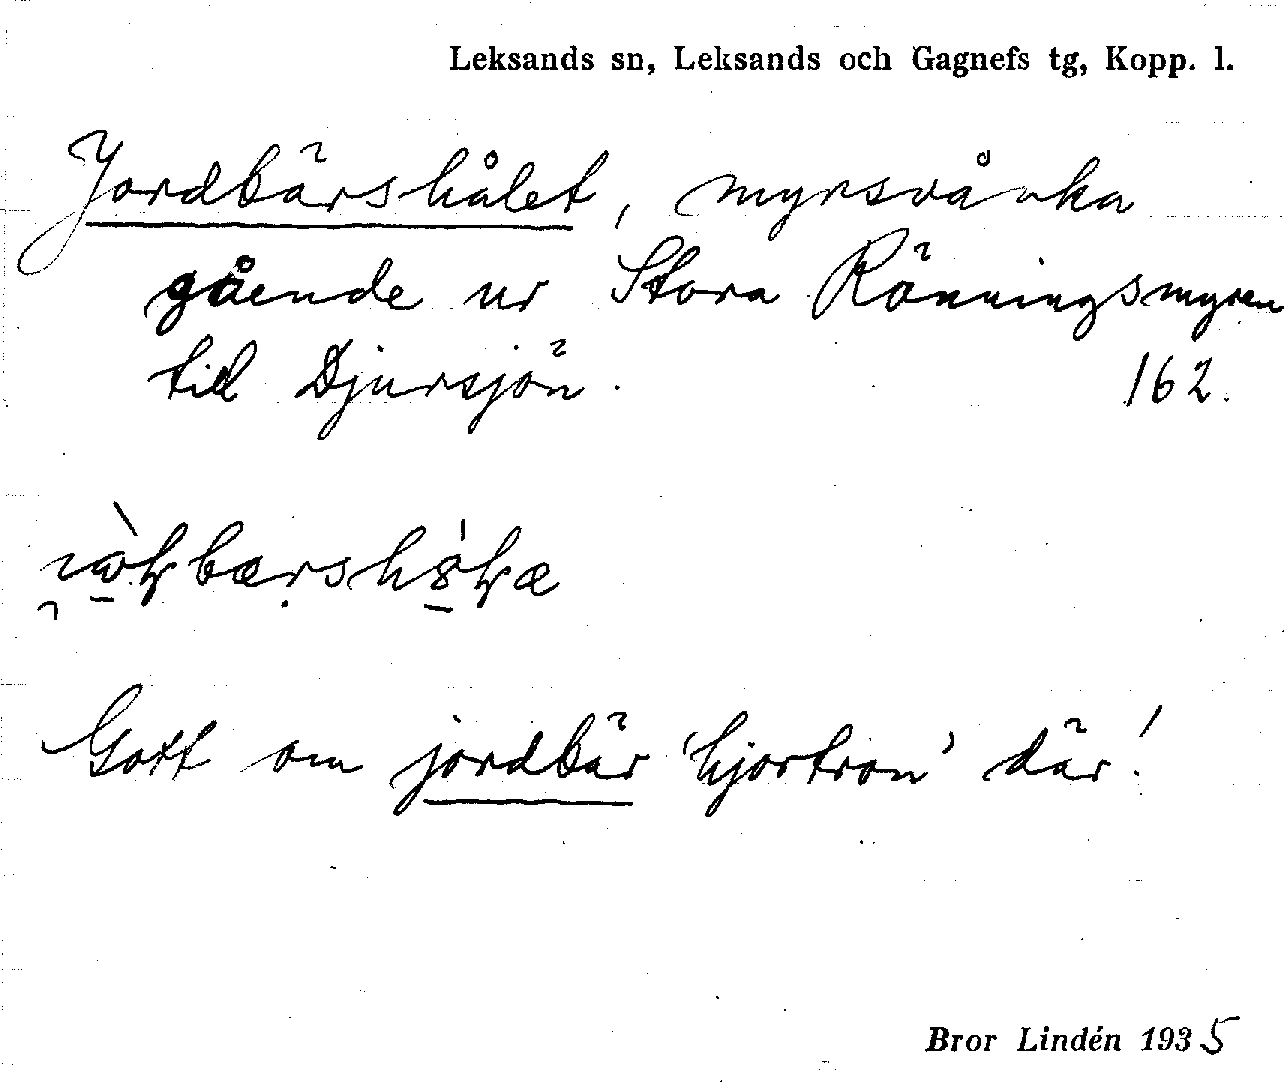 Leksands sn, Leksands och Gagnefs tg, Kopp. l.
Jordbärshålet, myrsvåka
gående ur Stora Rönningsmyren
till Djursjön. 162.
Gott om jordbär 'hjortron' där!
Bror Lindén 1935